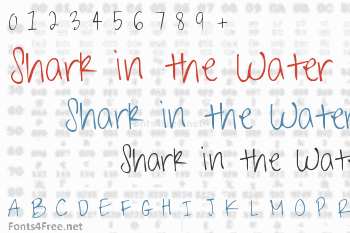 0 1 2 3 4 5 6 7 8 9 +
Shark in the Water
Shark in the Water
Shark in the Wat
A B C D E F G H I J K L M O P R
Fonts4Free.net